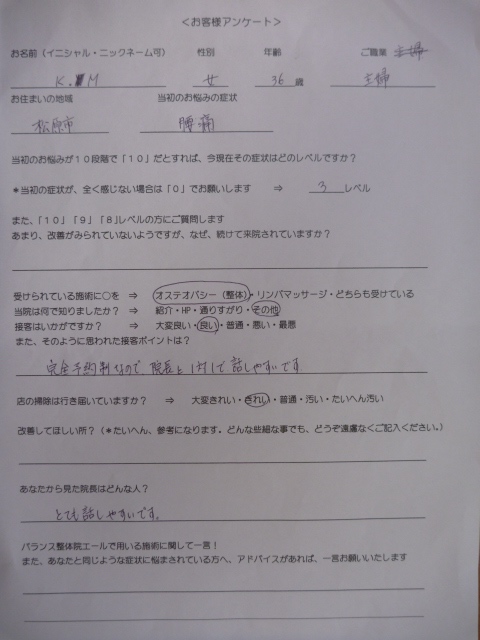 <お客様アンケート>
お名前（イニシャル・ニックネーム可） 性別 年齢 ご職業 主婦
K. M 女 36 歳 主婦
お住まいの地域 当初のお悩みの症状
松原市 腰痛
当初のお悩みが１０段階で「１０」だとすれば、今現在その症状はどのレベルですか？
＊当初の症状が、全く感じない場合は「０」でお願いします ⇒ 3 レベル
また、「１０」「９」「８」レベルの方にご質問します
あまり、改善がみられていないようですが、なぜ、続けて来院されていますか？
受けられている施術に○を ⇒ オステオパシー（整体）・リンパマッサージ・どちらも受けている
当院は何で知りましたか？ ⇒ 紹介・HP・通りすがり・その他
接客はいかがですか？ ⇒ 大変良い・良い・普通・悪い・最悪
また、そのように思われた接客ポイントは？
完全予約制なので、院長と1対1で話しやすいです
店の掃除は行き届いていますか？ ⇒ 大変きれい・きれい・普通・汚い・たいへん汚い
改善してほしい所？（＊たいへん、参考になります。どんな些細な事でも、どうぞ遠慮なくご記入ください。）
あなたから見た院長はどんな人？
とても話しやすいです。
バランス整体院エールで用いる施術に関して一言！
また、あなたと同じような症状に悩まされている方へ、アドバイスがあれば、一言お願いいたします